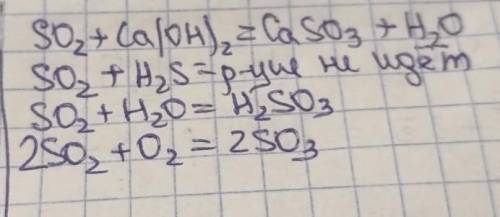 SO₂ + Ca(OH)₂ = CaSO₃ + H₂O
SO₂ + H₂S = р-ция не идёт
SO₂ + H₂O = H₂SO₃
2SO₂ + O₂ = 2SO₃